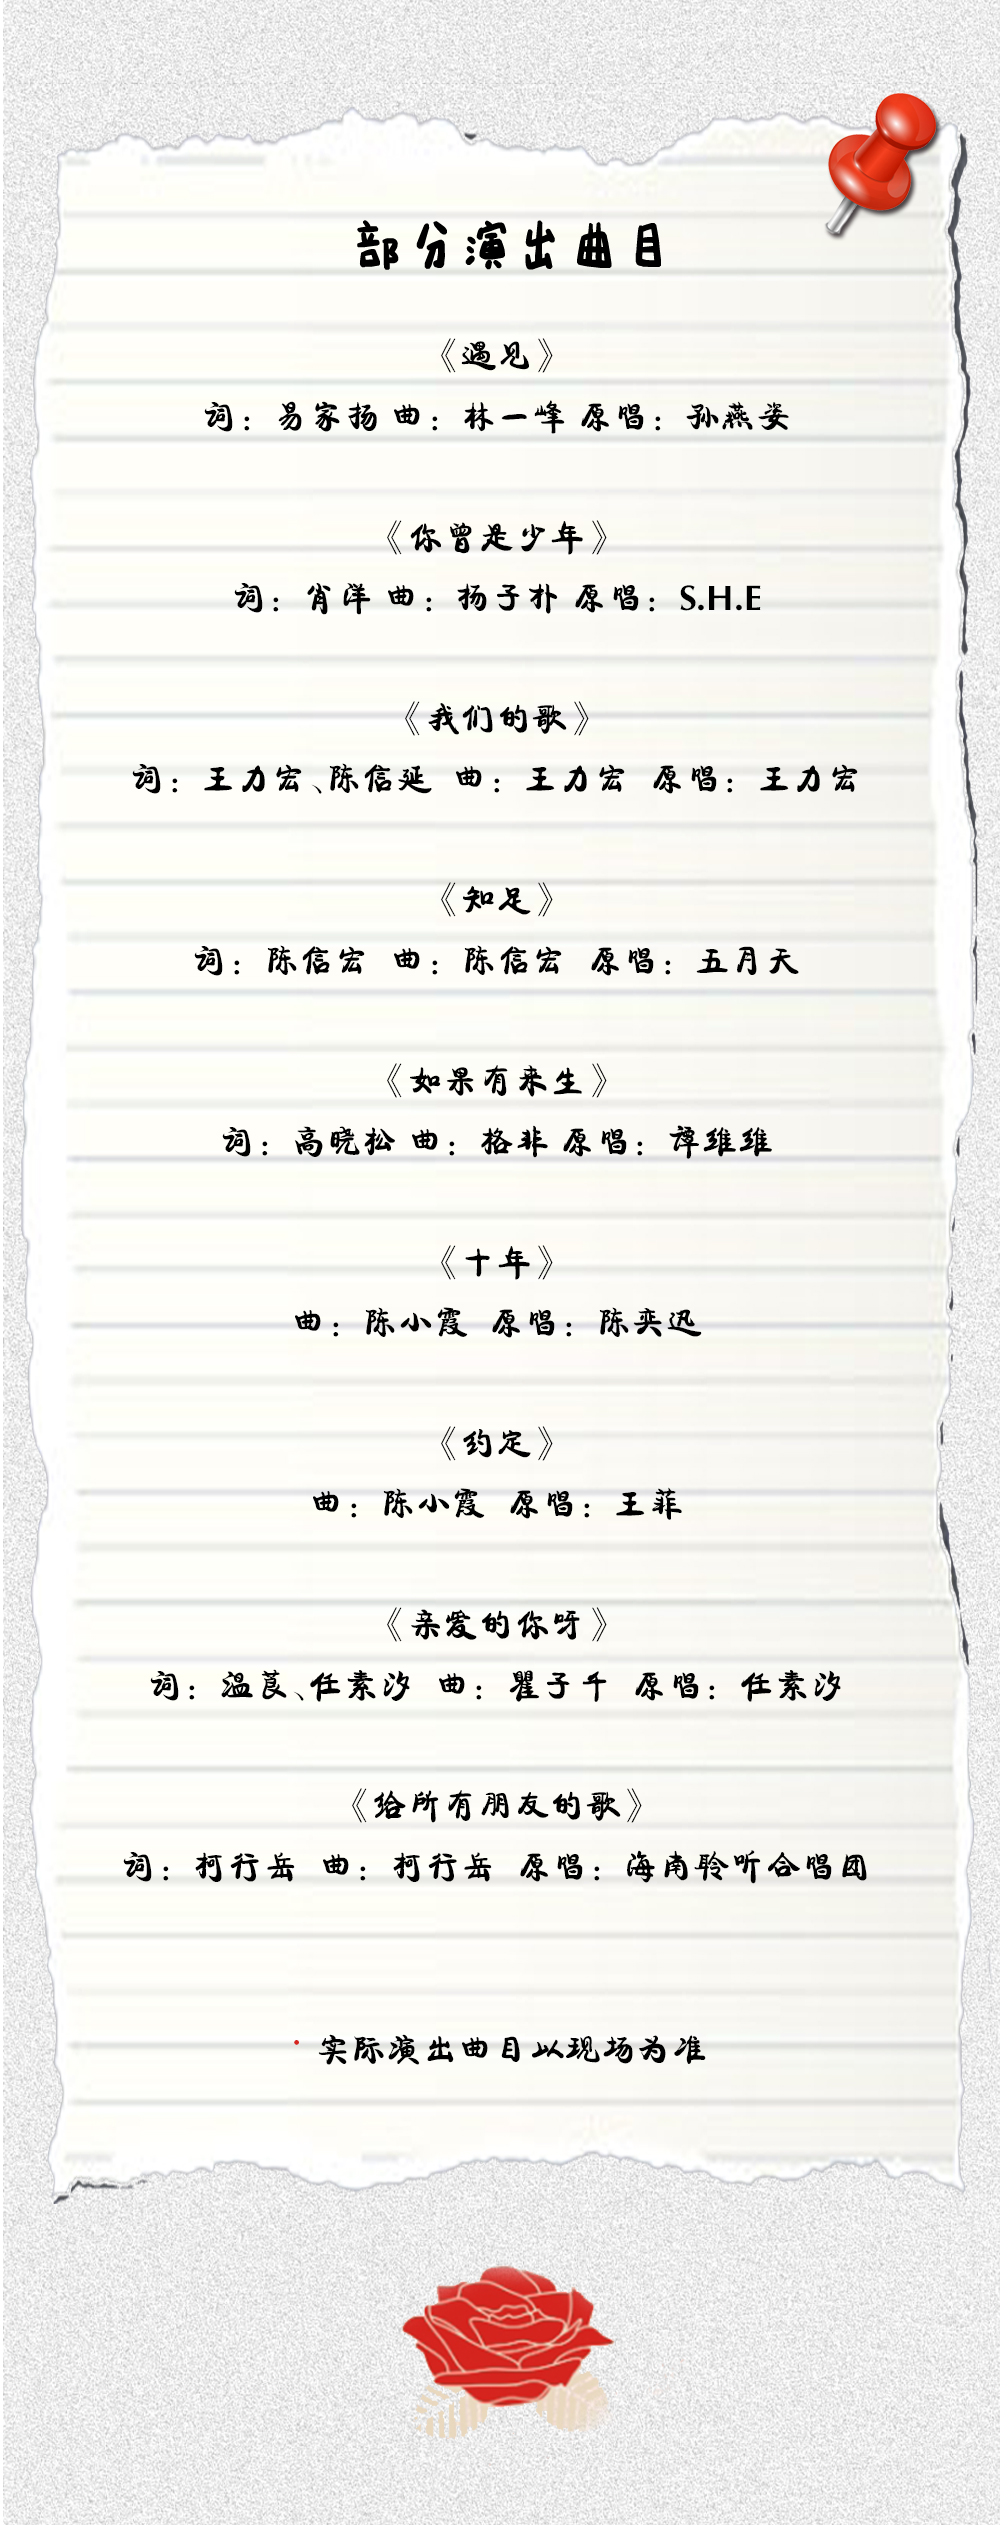 部分演出曲目
《遇见》
词：易家扬 曲：林一峰 原唱：孙燕姿
《你曾是少年》
词：肖洋 曲：杨子朴 原唱：S.H.E
《我们的歌》
词：王力宏、陈信延 曲：王力宏 原唱：王力宏
《知足》
词：陈信宏 曲：陈信宏 原唱：五月天
《如果有来生》
词：高晓松 曲：格非 原唱：谭维维
《十年》
曲：陈小霞 原唱：陈奕迅
《约定》
曲：陈小霞 原唱：王菲
《亲爱的你呀》
词：温莨、任素汐 曲：瞿子千 原唱：任素汐
《给所有朋友的歌》
词：柯行岳 曲：柯行岳 原唱：海南聆听合唱团
实际演出曲目以现场为准